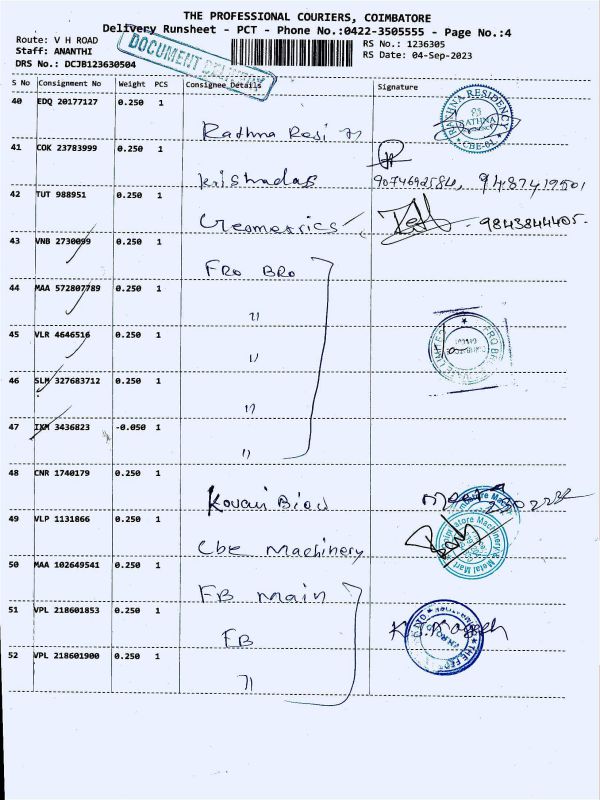 THE PROFESSIONAL COURIERS, COIMBATORE
Delivery Runsheet - PCT - Phone No.:0422-3505555 - Page No.:4
Route: V H ROAD
Staff: ANANTHI
DRS No.: DCJB123630504
RS No.: 1236305
RS Date: 04-Sep-2023
DOCUMENT DELIVERY
S No Consignment No Weight PCS Consignee Details Signature
40 EDQ 20177127 0.250 1
Rathna Resi
RATHNA RESIDENCY
41 COK 23783999 0.250 1
Krishadas 9074692584, 9487419501
42 TUT 988951 0.250 1
Geometrics 9843844405.
43 VNB 2730099 0.250 1
FRO BRO
44 MAA 572807789 0.250 1
"
45 VLR 4646516 0.250 1
"
46 SLM 327683712 0.250 1
"
47 IKM 3436823 -0.050 1
"
48 CNR 1740179 0.250 1
Kovai
49 VLP 1131866 0.250 1
Cbe Machinery
Coimbatore Machinery & Metal Mart
50 MAA 102649541 0.250 1
FB Main
51 VPL 218601853 0.250 1
FB
52 VPL 218601900 0.250 1
"